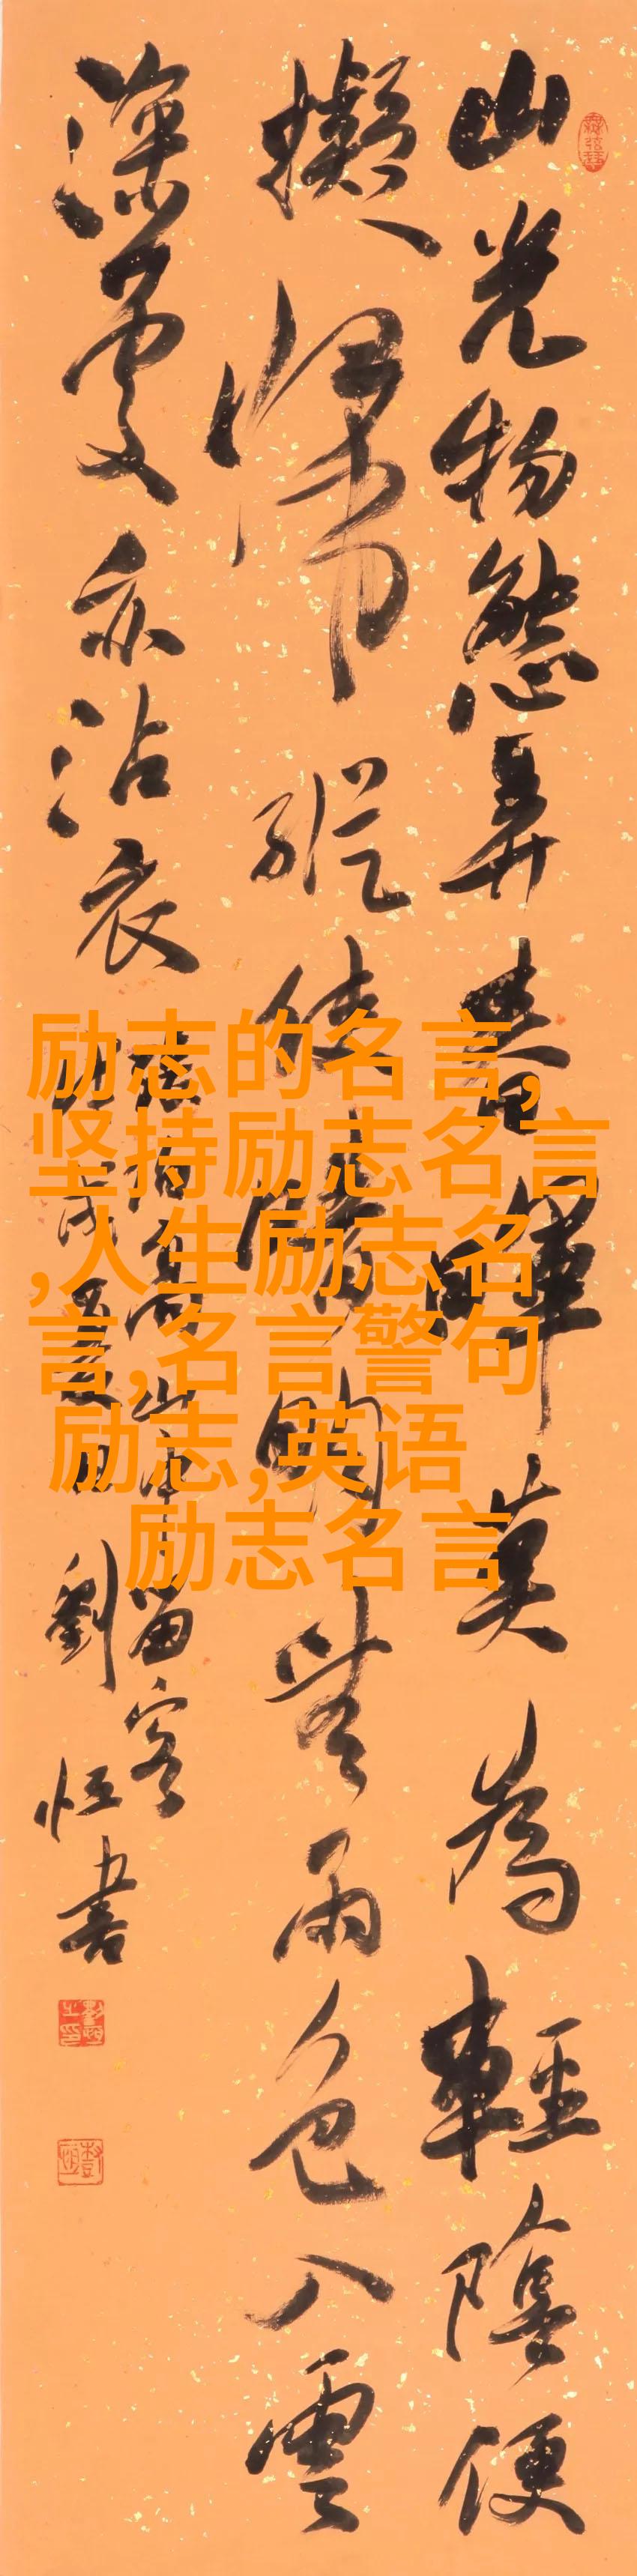 山光物態弄春暉莫為輕陰便
擬歸縱使晴明無雨色入雲
深處亦沾衣
伯高山中留客
劉恒書
励志的名言,
坚持励志名言
,人生励志名
言,名言警句
励志,英语
励志名言